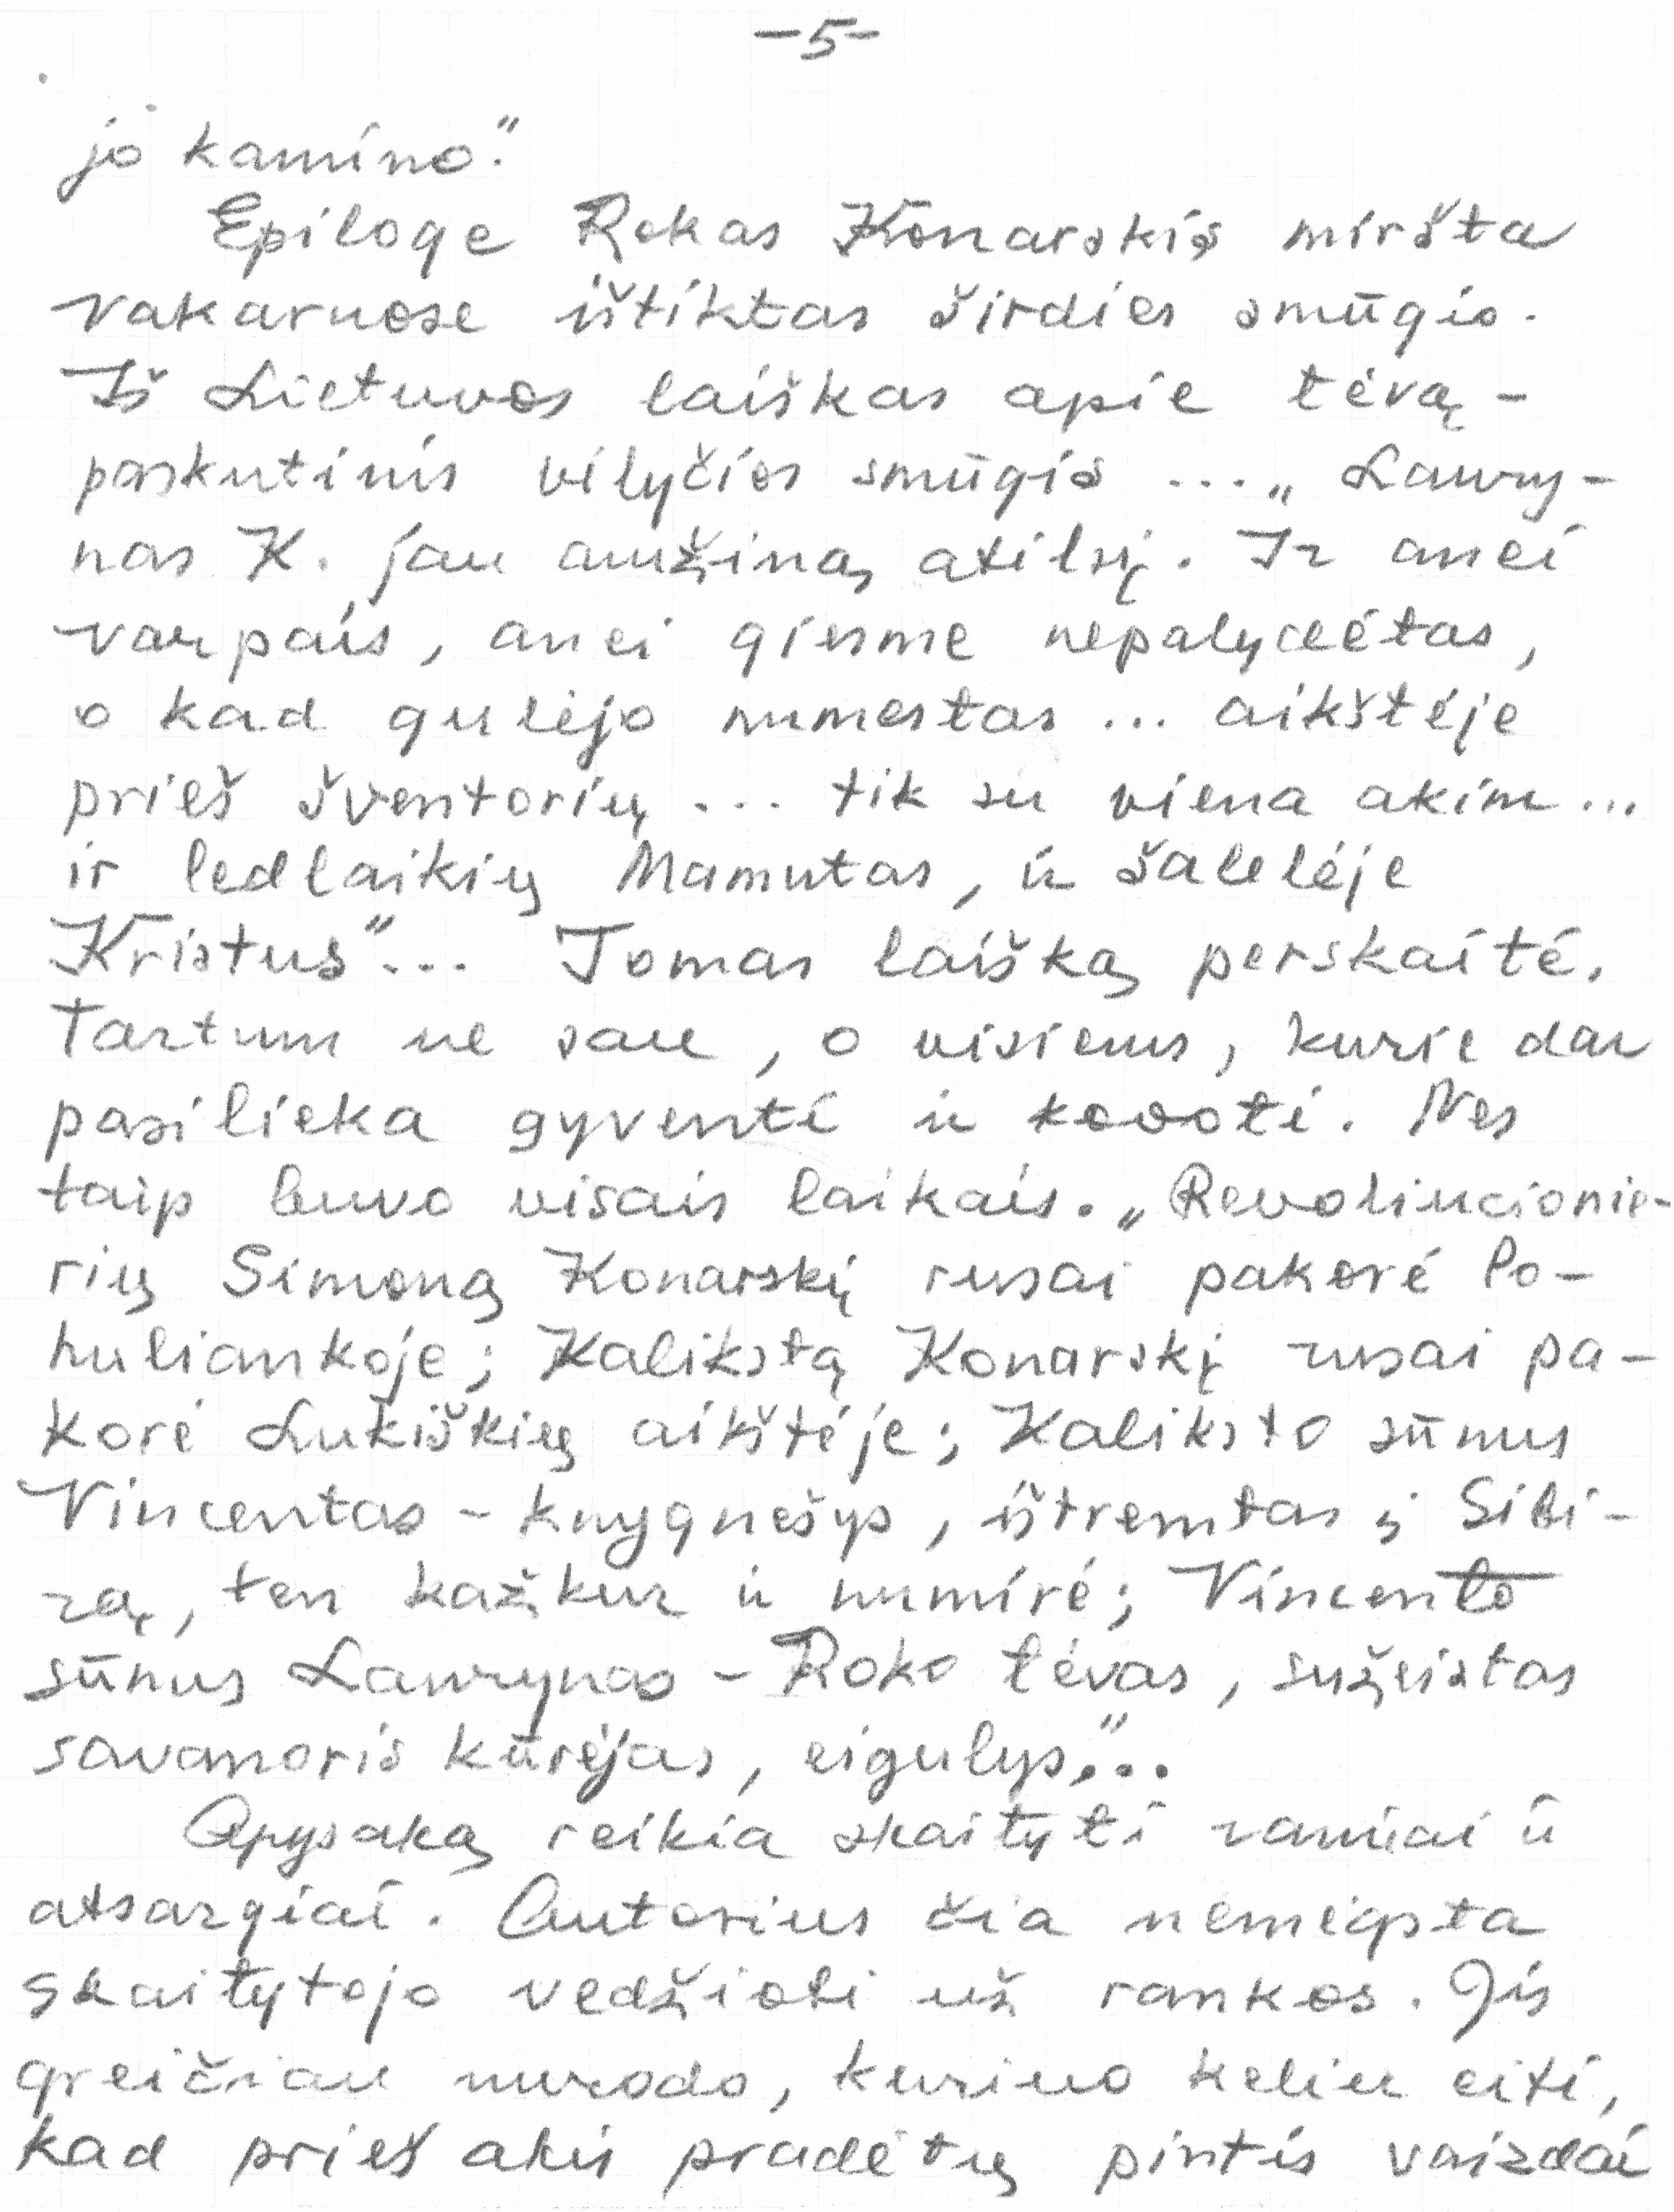 -5-
jo kamino."
Epiloge Rokas Konarskis miršta
vakaruose ištiktas širdies smūgio.
Iš Lietuvos laiškas apie tėvą -
paskutinis vilyčios smūgis ... „Laury-
nas K. jau amžiną atilsį. Ir anei
varpais, anei giesme nepalydėtas,
o kad gulėjo numestas ... aikštėje
prieš šventorių ... tik su viena akim...
ir ledlaikių Mamutas, ir šalelėje
Kristus"... Tomas laišką perskaitė.
Tartum ne sau, o visiems, kurie dar
pasilieka gyventi ir kovoti. Nes
taip buvo visais laikais. „Revoliucionie-
rių Simoną Konarskį rusai pakorė Po-
huliankoje; Kalikstą Konarskį rusai pa-
korė Lukiškių aikštėje; Kaliksto sūnus
Vincentas - knygnešys, ištremtas į Sibi-
rą, ten kažkur ir numirė; Vincento
sūnus Laurynas - Roko tėvas, sužeistas
savanoris kūrėjas, eigulys"...
Apysaką reikia skaityti ramiai ir
atsargiai. Autorius čia nemėgsta
skaitytojo vedžioti už rankos. Jis
greičiau nurodo, kuriuo keliu eiti,
kad prieš akis pradėtų pintis vaizdai